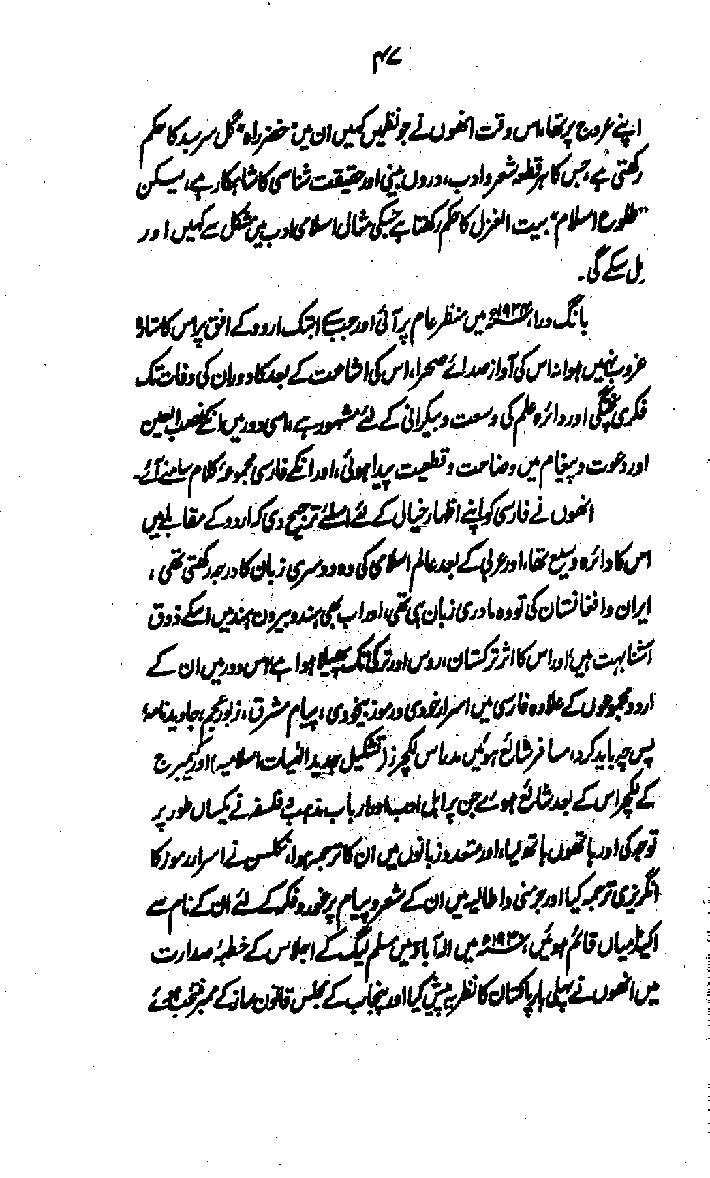 ۴۷
اپنے عروج پر تھا، اس وقت انھوں نے جو نظمیں کہیں ان میں "خضر راہ" گل سرسبد کا حکم
رکھتی ہے، جس کا ہر قطعہ شعر و ادب، دروں بینی اور حقیقت شناسی کا شاہکار ہے، لیکن
"طلوع اسلام" بیت الغزل کا حکم رکھتا ہے جسکی مثال اسلامی ادب میں مشکل سے کہیں اور
مل سکے گی۔
بانگ درا، ۱۹۲۴ء میں منظر عام پر آئی اور جب سے ابتک اردو کے افق پر اس کا ستارہ
غروب نہیں ہوا نہ اس کی آواز صدائے صحرا، اس کی اشاعت کے بعد کا دور ان کی وفات تک
فکری پختگی اور دائرہ علم کی وسعت و بیکرانی کے لئے مشہور ہے، اسی دور میں انکے نصب العین
اور دعوت و پیغام میں وضاحت و قطعیت پیدا ہوئی، اور انکے فارسی مجموعۂ کلام سامنے آئے۔
انھوں نے فارسی کو اپنے اظہار خیال کے لئے اسلئے ترجیح دی کہ اردو کے مقابلے میں
اس کا دائرہ وسیع تھا، اور عربی کے بعد عالم اسلامی کی وہ دوسری زبان کا درجہ رکھتی تھی،
ایران و افغانستان کی تو وہ مادری زبان ہی تھی، اور اب بھی ہند و بیرون ہند میں اسکے ذوق
آشنا بہت ہیں، اور اس کا اثر ترکستان، روس اور ترکی تک پھیلا ہوا ہے، اس دور میں ان کے
اردو مجموعوں کے علاوہ فارسی میں اسرار خودی و رموز بیخودی، پیام مشرق، زبور عجم، جاوید نامہ،
پس چہ باید کرد، مسافر شائع ہوئیں، مدراس لکچرز (تشکیل جدید الٰہیات اسلامیہ) اور کیمبرج
کے لکچر اس کے بعد شائع ہوئے جن پر اہل ادب اور ارباب مذہب و فلسفہ نے یکساں طور پر
توجہ کی اور ہاتھوں ہاتھ لیا، اور متعدد زبانوں میں ان کا ترجمہ ہوا، نکلسن نے اسرار و رموز کا
انگریزی ترجمہ کیا اور جرمنی و اطالیہ میں ان کے شعر و پیام پر غور و فکر کے لئے ان کے نام سے
اکیڈمیاں قائم ہوئیں، ۱۹۳۰ء میں الہ آباد میں مسلم لیگ کے اجلاس کے خطبۂ صدارت
میں انھوں نے پہلی بار پاکستان کا نظریہ پیش کیا اور پنجاب کے مجلس قانون ساز کے ممبر منتخب ہوئے